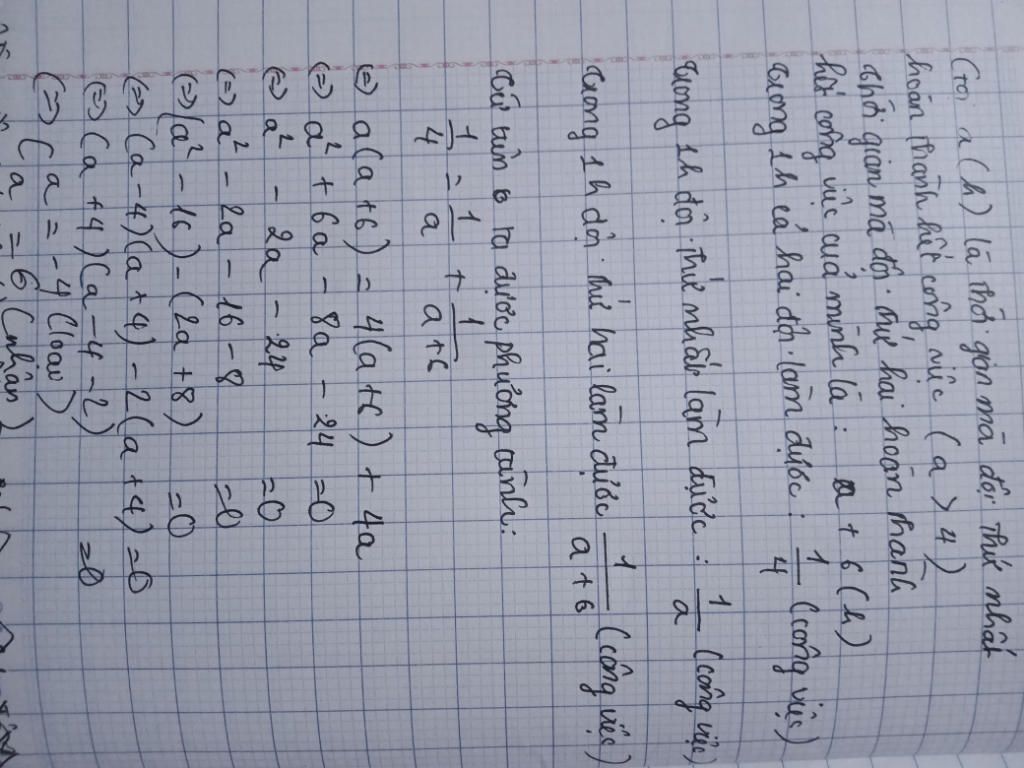 Gọi a (h) là thời gian mà đội thứ nhất
hoàn thành hết công việc (a > 4)
thời gian mà đội thứ hai hoàn thành
hết công việc của mình là : a + 6 (h)
trong 1h cả hai đội làm được : 1/4 (công việc)
trong 1h đội thứ nhất làm được : 1/a (công việc)
trong 1h đội thứ hai làm được 1/(a+6) (công việc)
từ trên ta được phương trình:
1/4 = 1/a + 1/(a+6)
(=) a(a+6) = 4(a+6) + 4a
(=) a² + 6a - 8a - 24 = 0
(=) a² - 2a - 24 = 0
(=) a² - 2a - 16 - 8 = 0
(=) (a² - 16) - (2a + 8) = 0
(=) (a-4)(a+4) - 2(a+4) = 0
(=) (a+4)(a-4-2) = 0
(=) ( a = -4 (loại)
( a = 6 (nhận)